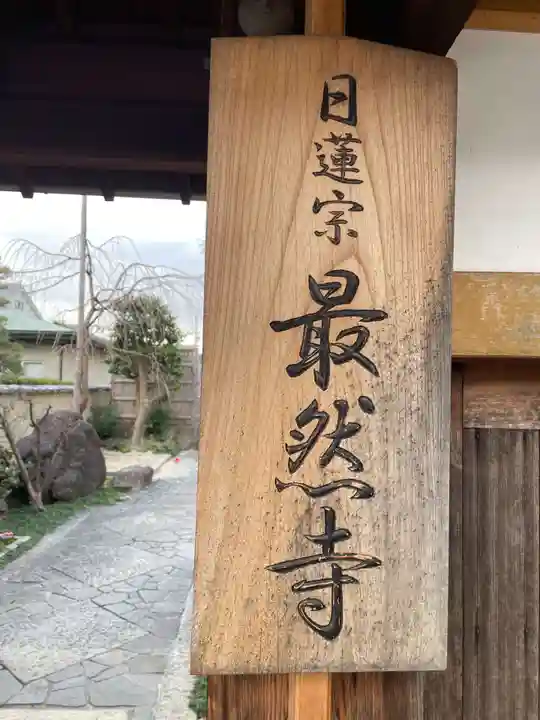 日蓮宗 最然寺